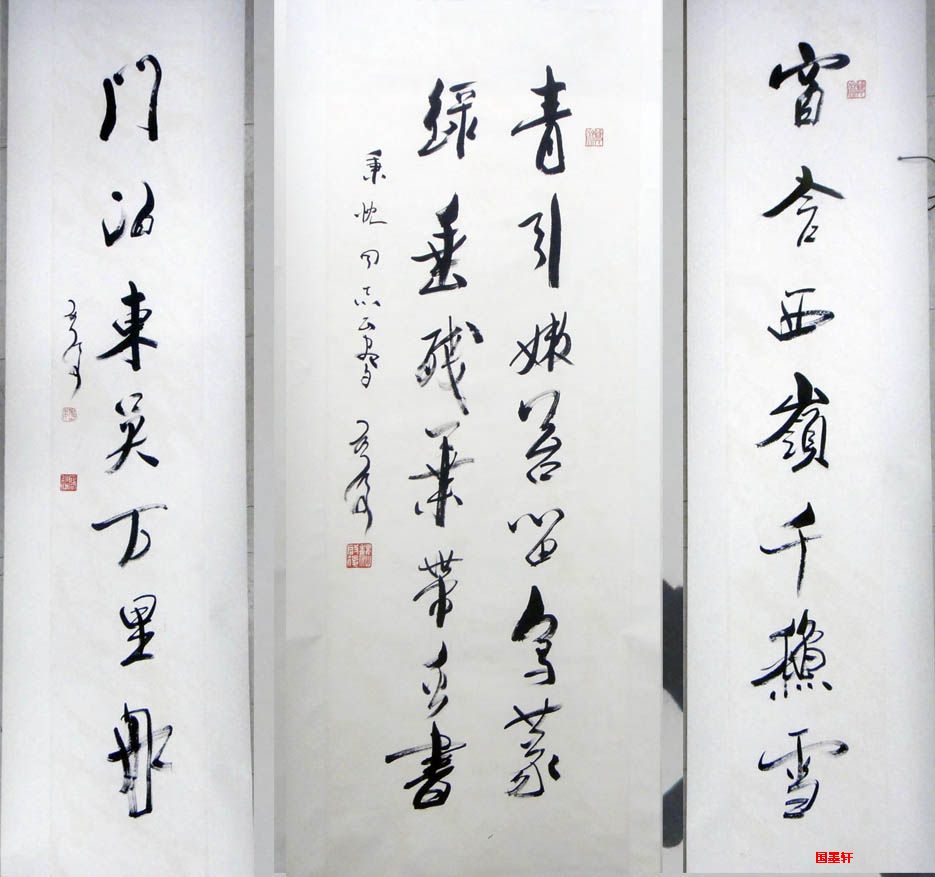 窗含西嶺千龝雪
青引嫩苔留鳥篆
綠垂殘葉帶虫書
秉忱同志
門泊東吳万里船
国墨轩